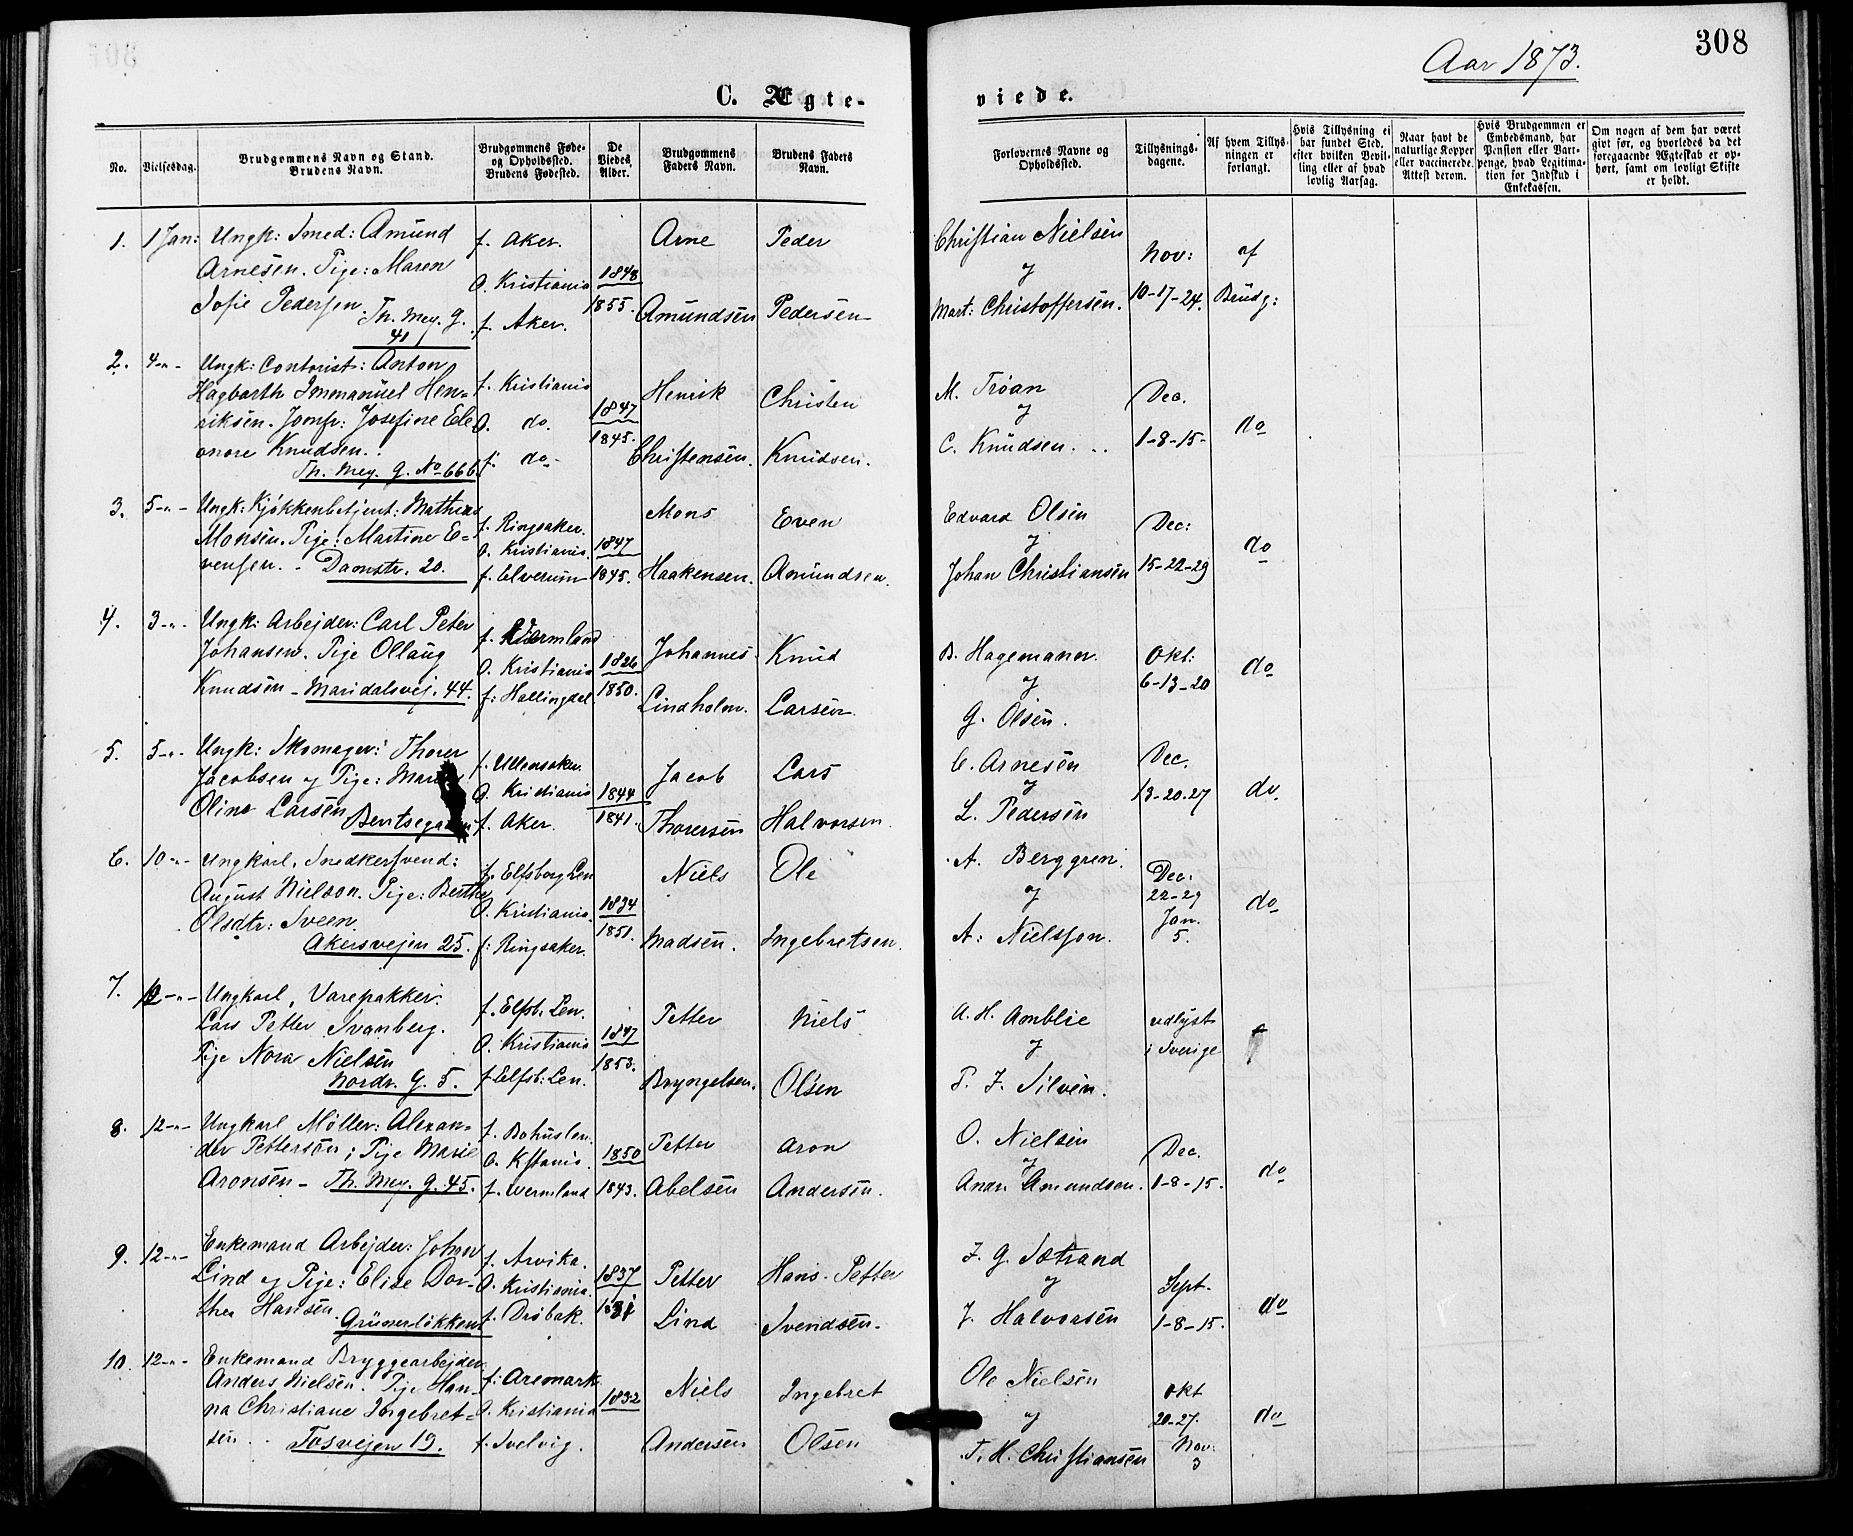 308
Aar 1873.
C. Ægte-
viede.
No.
Vielsesdag.
Brudgommens Navn og Stand.
Brudens Navn.
Brudgommens Føde-
og Opholdssted.
Brudens Fødested.
De
Viedes
Alder.
Brudgommens
Faders Navn.
Brudens Faders
Navn.
Forlovernes Navne og
Opholdssted.
Tillysnings-
dagene.
Af hvem Tillys-
ningen er
forlangt.
Hvis Tillysning ei
har fundet Sted,
efter hvilken Bevil-
ling eller af hvad
lovlig Aarsag.
Naar havt de
naturlige Kopper
eller vaccinerede.
Attest derom.
Hvis Brudgommen er
Embedsmand, har
Pension eller Vart-
penge, hvad Legitima-
tion for Indskud i
Enkekassen.
Om nogen af dem har været
gift før, og hvorledes da det
foregaaende Ægteskab er op-
hørt, samt om lovligt Skifte
er holdt.
1. 1 Jan: Ungk: Smed: Amund
Arnesen. Pige: Maren
Sofie Pedersen.
Th. Mey. G.
41
f. Aker.
O. Kristiania
f. Aker.
1848
1855.
Arne
Amundsen
Peder
Pedersen
Christian Nielsen
og
Mart: Christoffersen.
Nov:
10-17-24.
af
Brudg:
2. 4-"- Ungk: Contorist: Anton
Hagbarth Immanuel Hen-
riksen. Jomfr: Josefine Ele-
onore Knudsen.
Th. Mey. G. No 66 b
f. Kristiania
O. do.
f. do-
1847
1845.
Henrik
Christensen.
Christen
Knudsen.
M. Troan
og
C. Knudsen.
Dec.
1-8-15-
do
3. 5-"- Ungk: Kjøkkenbetjent: Mathias
Monsen. Pige: Martine E-
vensen. Damstr. 20.
f. Ringsaker.
O. Kristiania.
f. Elverum
1847
1845.
Mons
Haakensen.
Even
Amundsen.
Edvard Olsen
og
Johan Christiansen
Dec:
15-22-29
do
4. 3-"- Ungk: Arbejder: Carl Peter
Johansen. Pige Ollaug
Knudsen - Maridalsvej. 44.
f. Värmland
O. Kristiania
f: Hallingdal.
1826
1850.
Johannes
Lindholm.
Knud
Larsen
B. Hagemann.
og
G. Olsen.
Okt:
6-13-20
do
5. 5-"- Ungk: Skomager: Thorer
Jacobsen og Pige:
Oline Larsen
f. Ullensaker.
O. Kristiania
f. Aker.
1844
1841.
Jacob
Thorersen
Lars
Halvorsen
C. Arnesen
og
L. Pedersen
Dec.
13-20-27
do.
6. 10-"- Ungkarl, Snedkersvend:
August Nielson. Pige: Berthe
Olsdtr: Sveen.
Akersvejen 25.
f. Elfsborg Len
O. Kristiania.
f: Ringsaker.
1834
1851.
Niels
Madsen.
Ole
Ingebretsen.
A. Berggren.
og
A: Nielsson.
Dec:
22-29
Jan.
5.
do
7. 12-"- Ungkarl, Varepakker:
Lars Petter Svanberg.
Pige Nora Nielsen
Nordr. G. 5.
f. Elfsb. Len.
O. Kristiania
f. Elfsb: Len.
1847
1853.
Petter
Bryngelsen.
Niels
Olsen
A. H. Amblie
og
P. J. Silvén.
udlyst
i Sverige
8. 12-"- Ungkarl Møller: Alexan-
der Pettersen; Pige Marie
Aronsen - Th. Mey. G. 45.
f. Bohuslen.
O. Kstania.
f. Wermland
1850
1843.
Petter
Abelsen
Aron
Andersen.
O. Nielsen
og
Andr. Amundsen.
Dec.
1-8-15.
do
9. 12-"- Enkemand Arbejder: Johan
Lind og Pige: Elise Dor-
thea Hansen.
Grünerløkken
f. Arvika.
O. Kristiania.
f. Drøbak.
1837
Petter
Lind
Hans-Petter
Svendsen-
J. G. Sætrand
og
J. Halvorsen
Sept.
1-8-15.
do
10. 12-"- Enkemand Bryggearbejder:
Anders Nielsen. Pige Han-
na Christiane Ingebret-
sen. Tøsvejen 19.
f: Aremark
O. Kristiania
f. Svelvig.
1832
Niels
Andersen
Ingebret
Olsen
Ole Nielsen
og
T. H. Christiansen
Okt
20-27.
Nov:
3
do